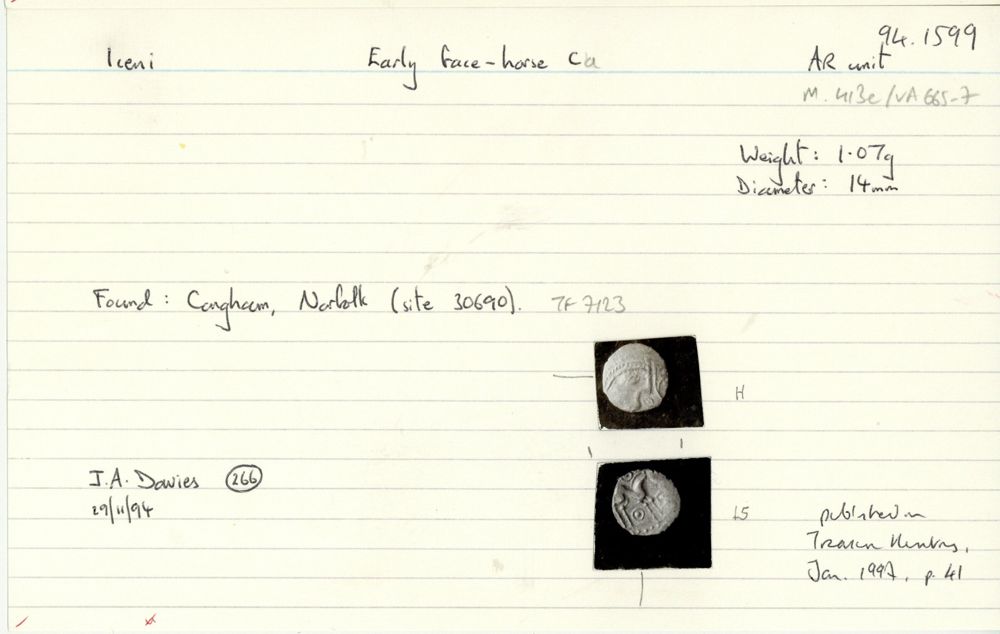 94.1599
Iceni Early face-horse Ca AR unit
M. 413c/VA 665-7
Weight: 1.07g
Diameter: 14mm
Found: Congham, Norfolk (site 30690). TF 7123
H
J.A. Davies 266
29/11/94
LS
published in
Treasure Hunting,
Jan. 1997, p. 41